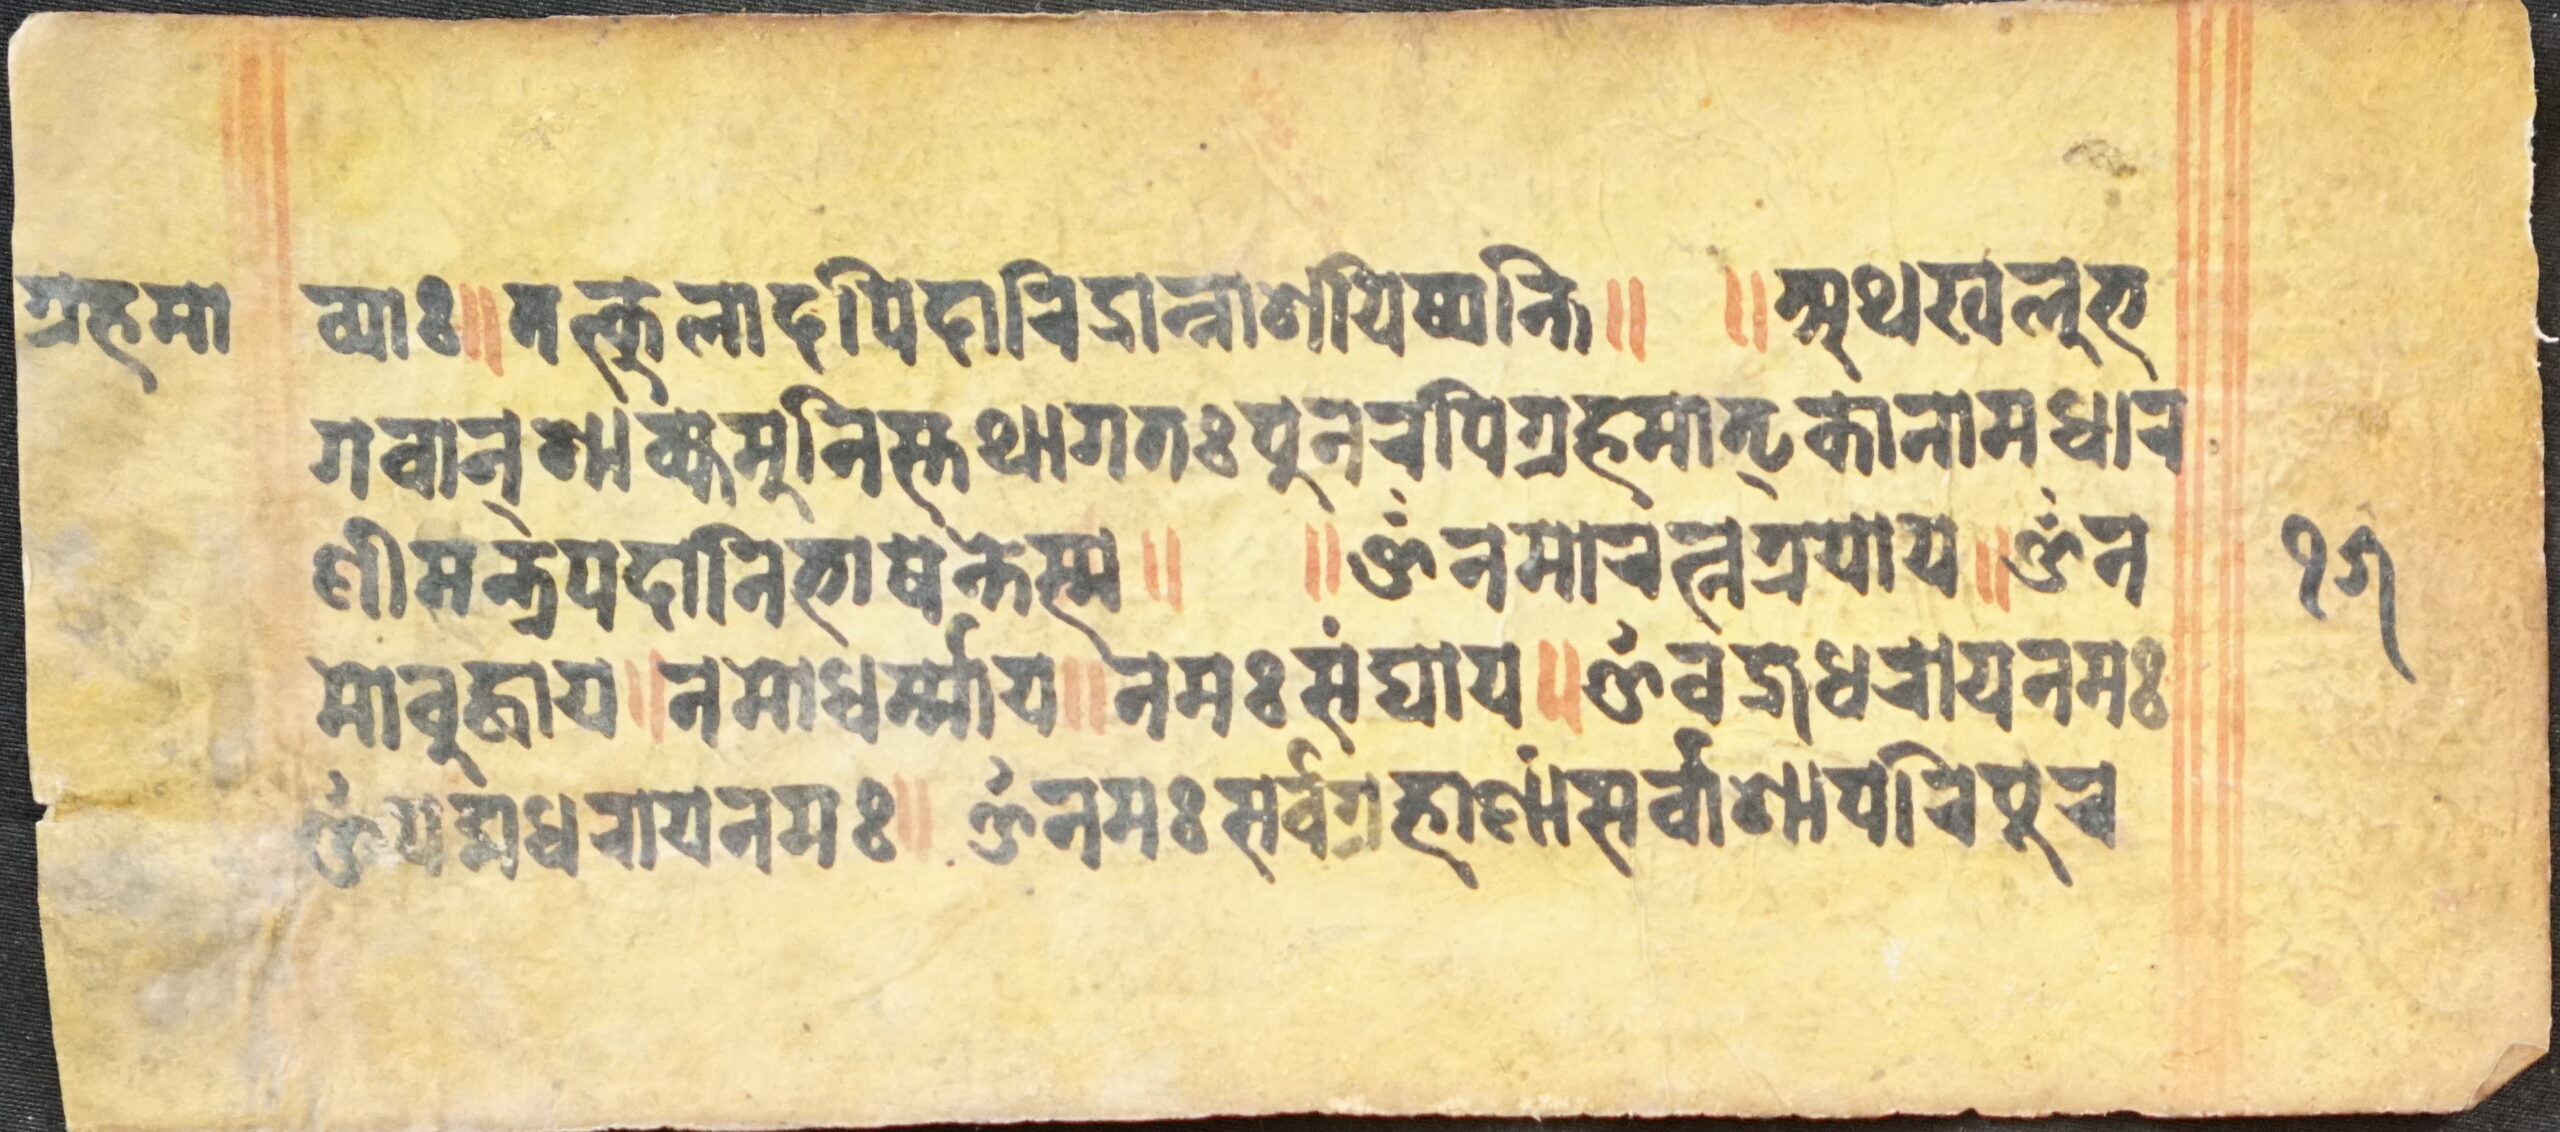 ग्रहमा
व्याः॥तत्कुलादपिदारिद्रान्नाशयिष्यन्ति॥ ॥अथखलुभ
गवान्शाक्यमुनिस्तथागतःपुनरपिग्रहमातृकानामधार
णीमन्त्रपदानिभाषन्तेस्म॥ ॥ॐनमोरत्नत्रयाय॥ॐन
१७
मोबुद्धाय॥नमोधर्म्माय॥नमःसंघाय॥ॐवज्रधरायनमः
ॐपद्मधरायनमः॥ ॐनमःसर्वग्रहाणांसर्वाशापरिपुर